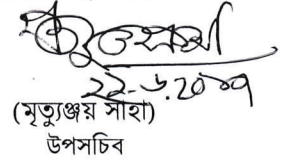 ২২-৬.২০১৭
(মৃত্যুঞ্জয় সাহা)
উপসচিব